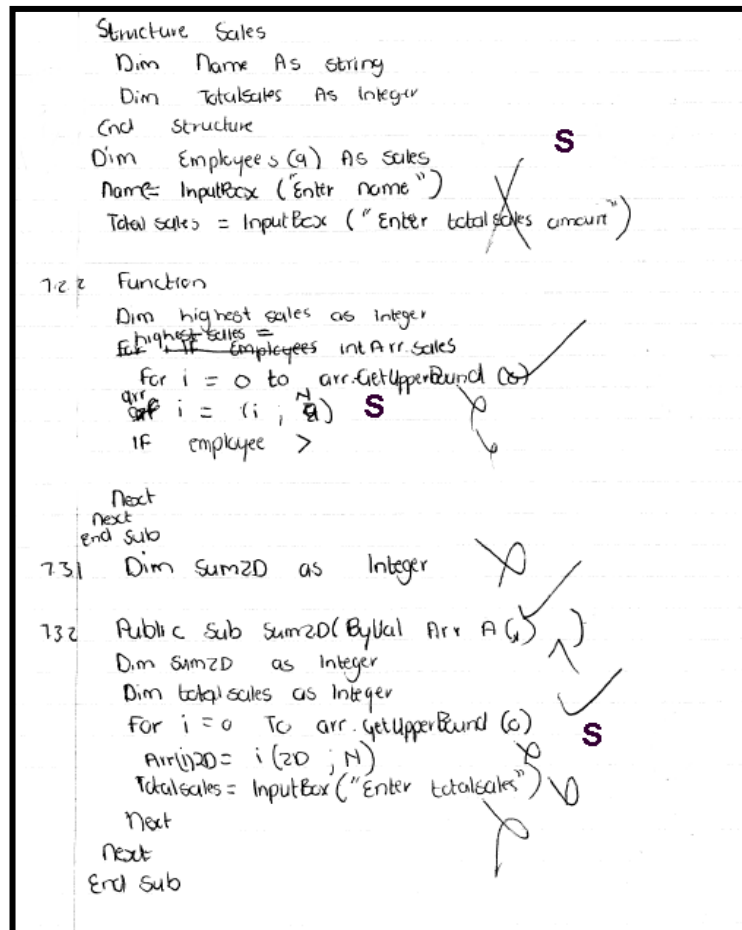 Structure Sales
Dim Name As String
Dim Totalsales As Integer
End Structure
S
Dim Employees(9) As Sales
Name = InputBox ("Enter name")
Total sales = InputBox ("Enter totalsales amount")
7.2.2 Function
Dim highest sales as Integer
highest sales =
For IF Employees intArr.sales
For i = 0 to arr.GetUpperBound (0)
arr i = (i ; N)
S
IF employee >
Next
next
end sub
7.3.1 Dim Sum2D as Integer
7.3.2 Public Sub Sum2D(ByVal Arr A(,) )
Dim Sum2D as Integer
Dim totalsales as Integer
For i = 0 To arr.GetUpperBound (0)
S
Arr(i)2D = i (2D ; N)
Totalsales = InputBox ("Enter totalsales")
Next
Next
End Sub